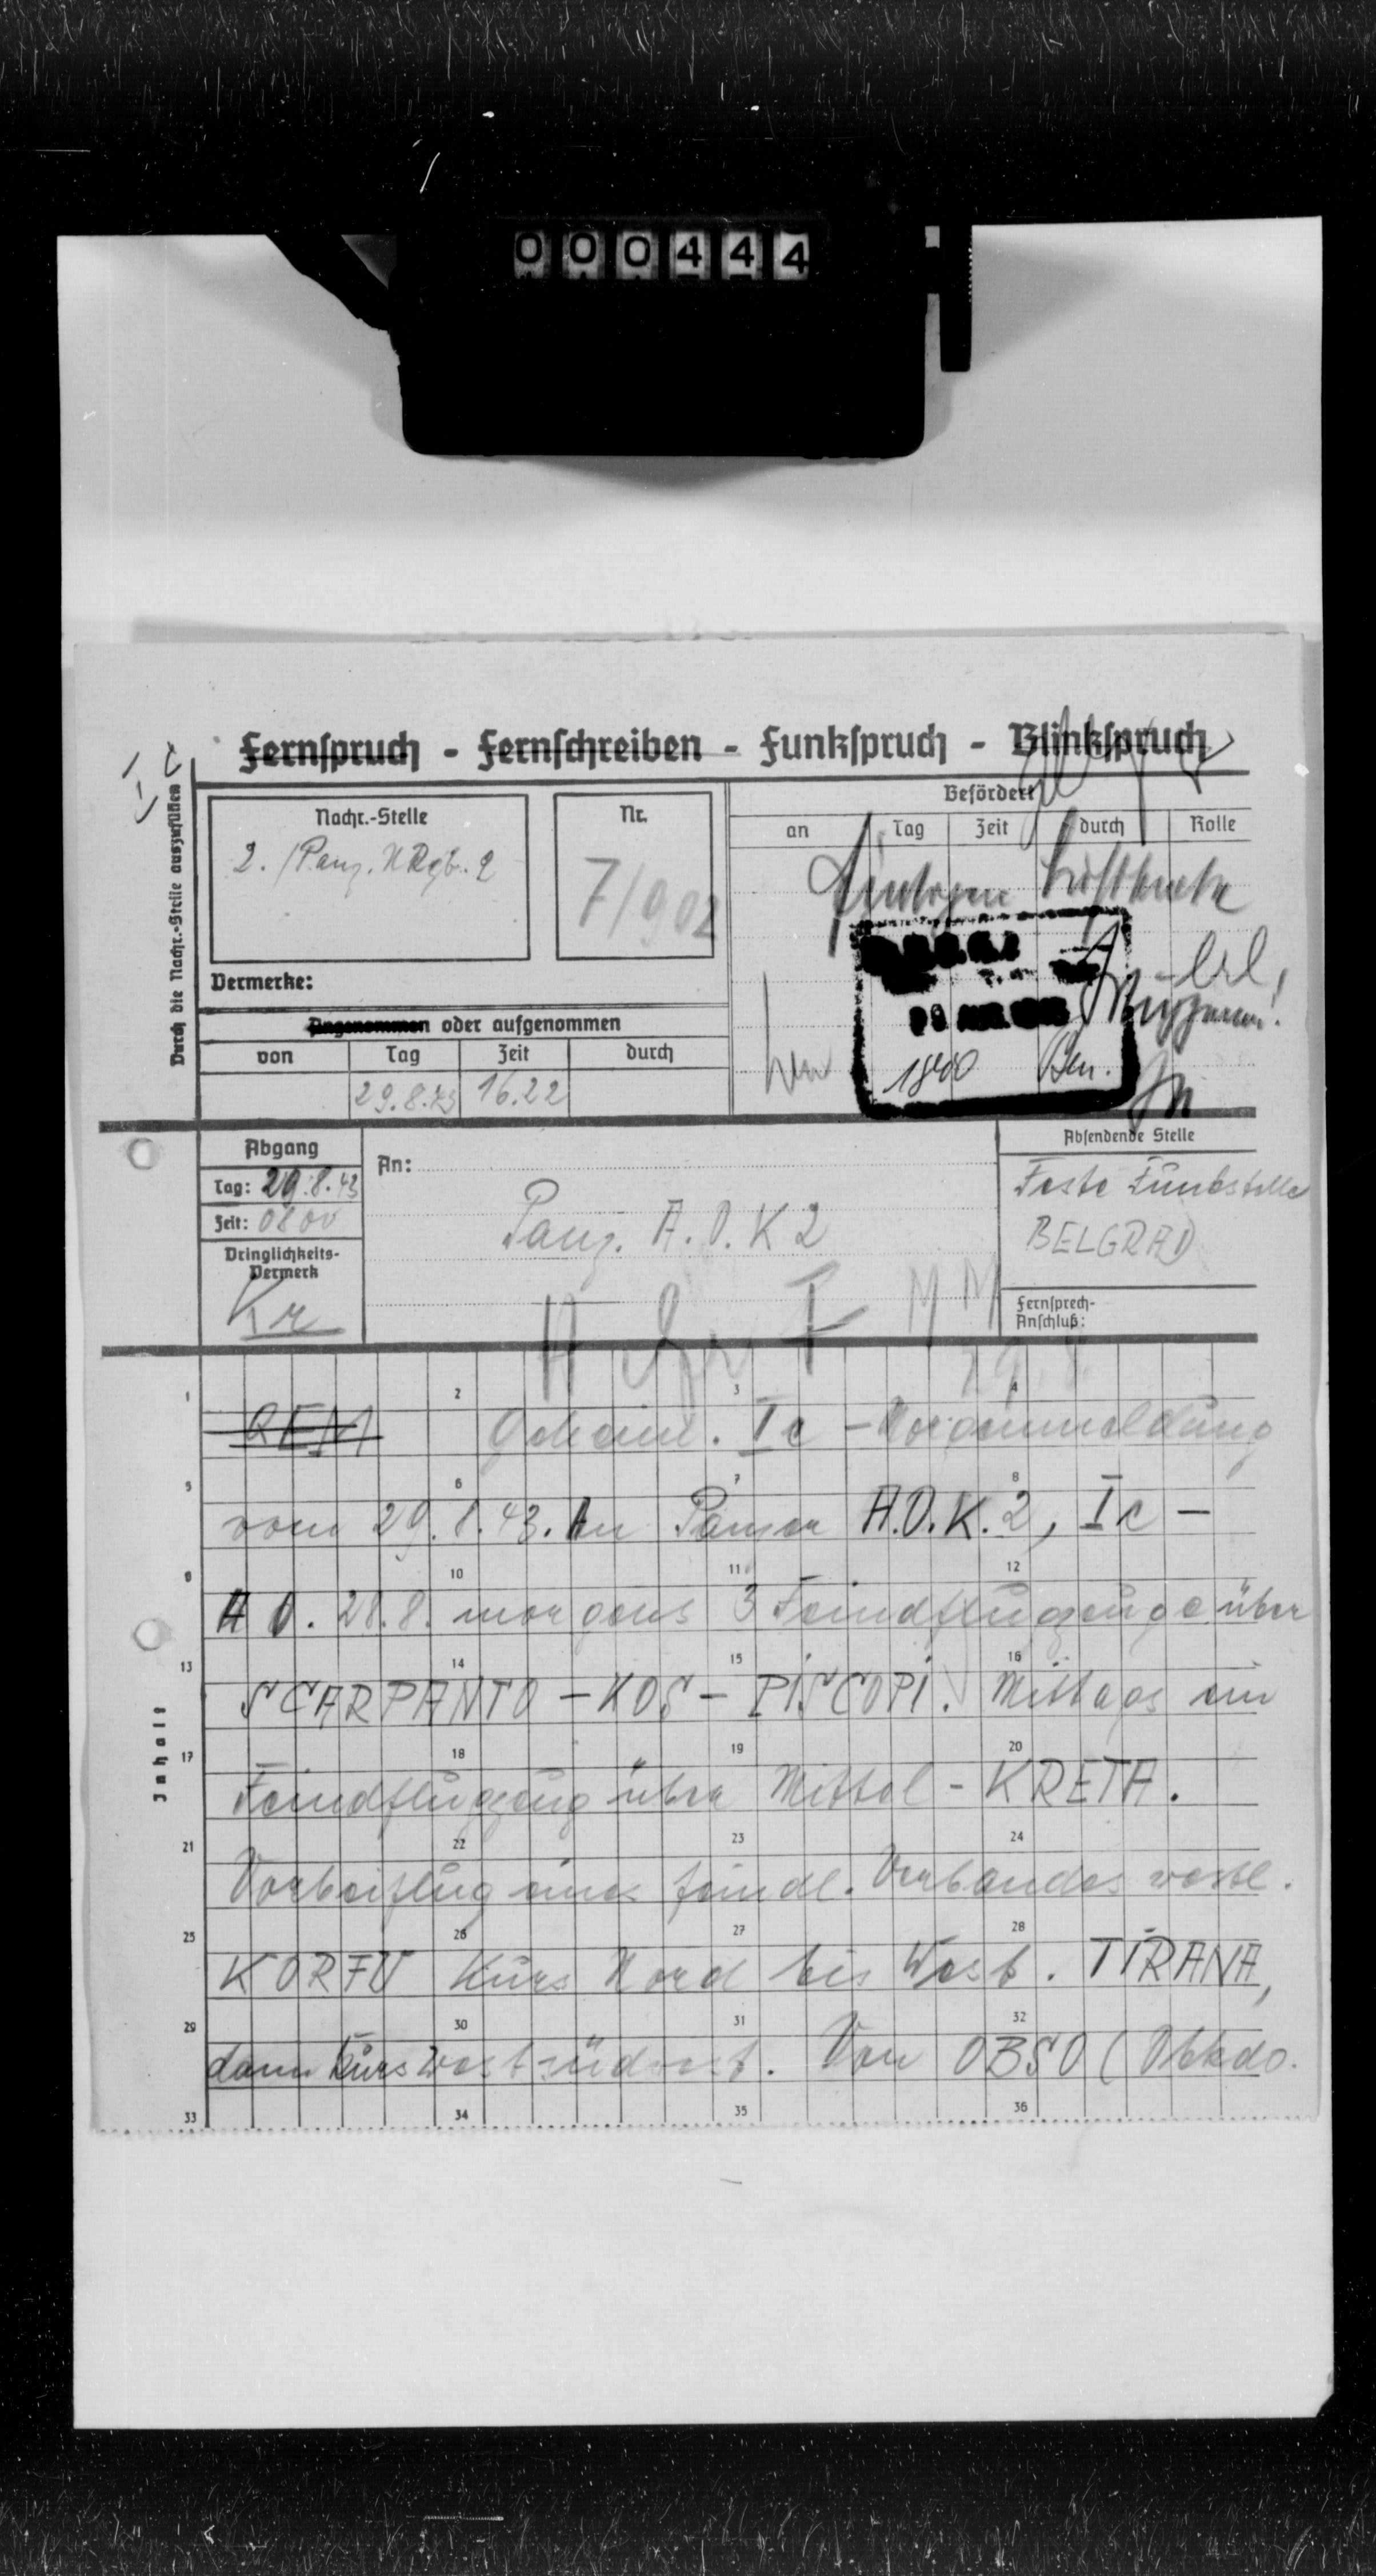 000444
Fernspruch - Fernschreiben - Funkspruch - Blinkspruch
Durch die Nachr.-Stelle auszufüllen
Nachr.-Stelle
2./Panz.NRgt.2
Nr.
7/902
Befördert
an Tag Zeit durch Rolle
Vermerke:
Angenommen oder aufgenommen
von Tag Zeit durch
29.8.43 16.22
1840
Abgang
Tag: 29.8.43
Zeit: 0800
Dringlichkeits-
Vermerk
Kr
An:
Panz. A.O.K 2
Absendende Stelle
Feste Funkstelle
BELGRAD
Fernsprech-
Anschluß:
29.8.
Inhalt
1 2 3 4
REM Geheim. Ic - Morgenmeldung
5 6 7 8
vom 29.8.43. An Panzer A.O.K. 2, Ic -
9 10 11 12
A O. 28.8. morgens 3 Feindflugzeuge über
13 14 15 16
SCARPANTO - KOS - PISCOPI. Mittags ein
17 18 19 20
Feindflugzeug über Mittel - KRETA.
21 22 23 24
Vorbeiflug eines feindl. Verbandes westl.
25 26 27 28
KORFU Kurs Nord bis West. TIRANA,
29 30 31 32
dann Kurs Westsüdwest. Von OBSO (Obkdo.
33 34 35 36